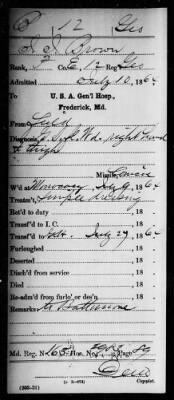 B 12 Ges
J. J. Brown
Rank, P Co. E, 12 Reg. Ges
Admitted July 10, 1864
To U. S. A. Gen'l Hosp.,
Frederick, Md.
From Field
Diagnosis, Wd. right hand
& thigh
Missile,
W'd at Monocacy July 9, 1864
Treatm't, Simple dressing
Ret'd to duty , 18
Transf'd to I. C. , 18
Transf'd to July 27, 1864
Furloughed , 18
Deserted , 18
Disch'd from service , 18
Died , 18
Re-adm'd from furlo' or des'n , 18
Remarks: to Baltimore
Md. Reg. No. Hos. No. Page
Copyist.